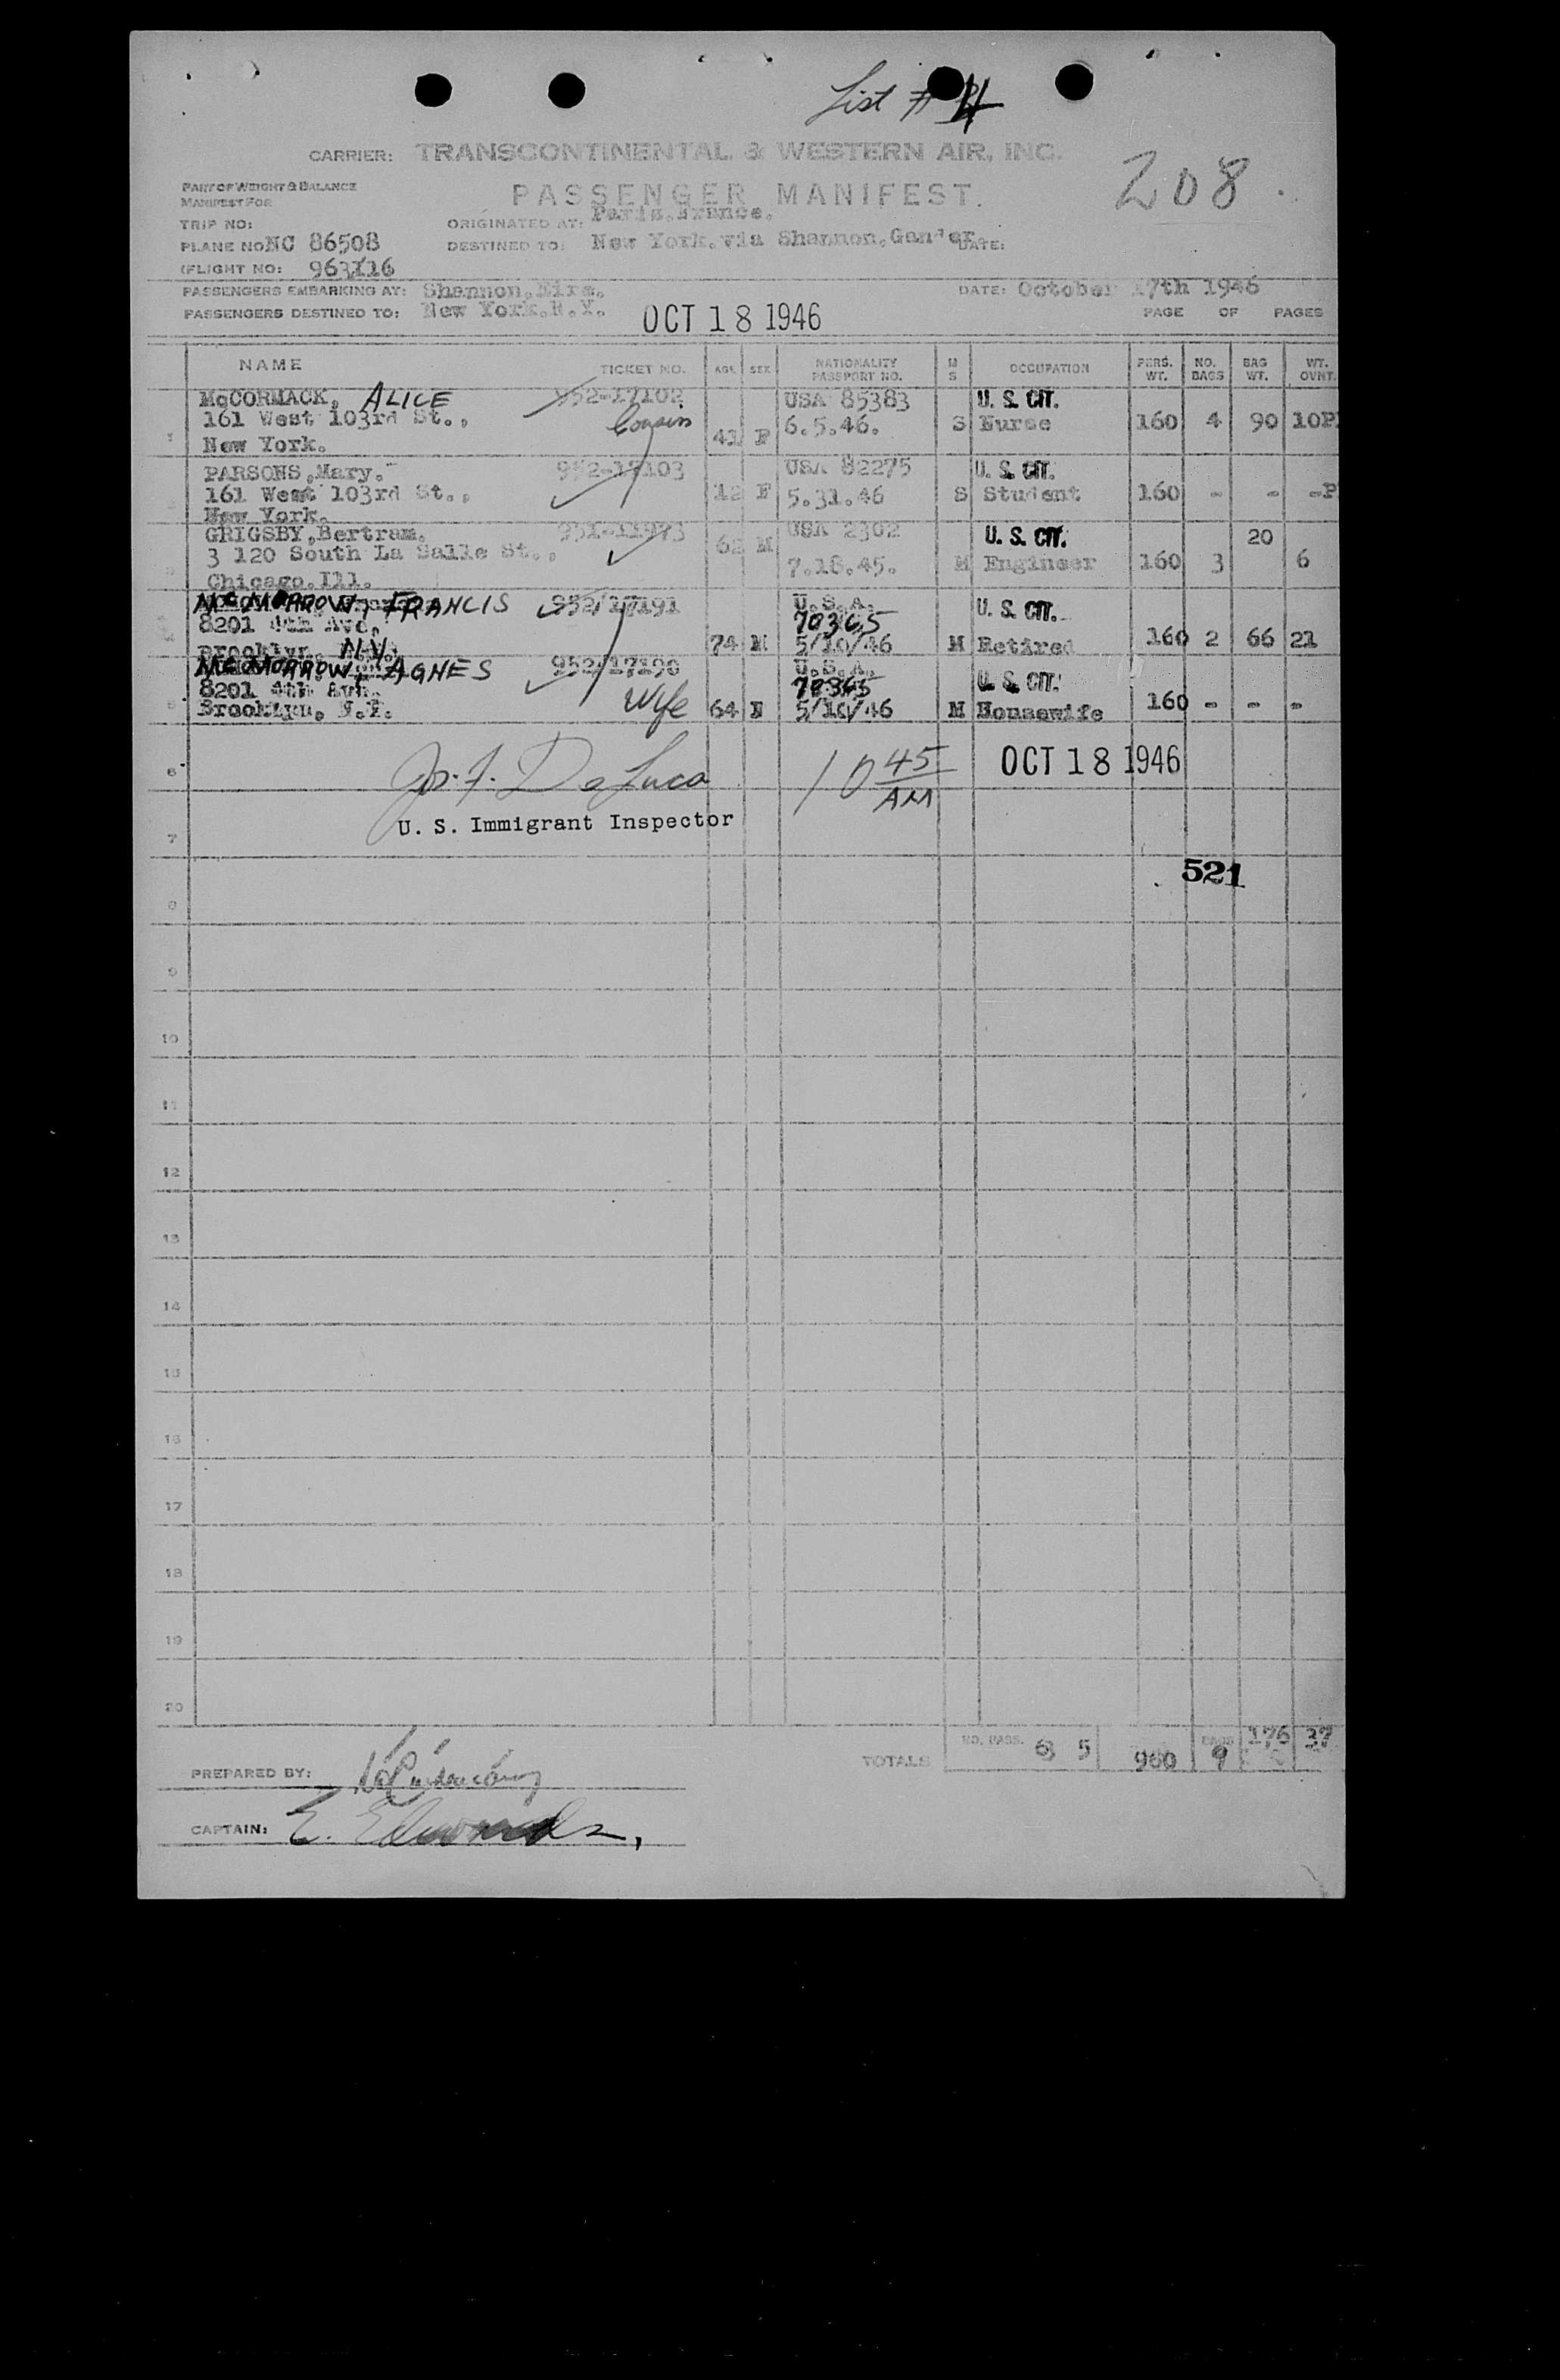 List # 4
CARRIER: TRANSCONTINENTAL & WESTERN AIR, INC.
208.
PART OF WEIGHT & BALANCE
MANIFEST FOR
PASSENGER MANIFEST.
TRIP NO:
ORIGINATED AT: Paris.France.
PLANE NO: NC 86508
DESTINED TO: New York.via Shannon,Gander. DATE:
(FLIGHT NO: 963/16
PASSENGERS EMBARKING AT: Shannon.Eire.
DATE: October 17th 1946
PASSENGERS DESTINED TO: New York.N.Y.
OCT 18 1946
PAGE OF PAGES
NAME TICKET NO. AGE SEX NATIONALITY PASSPORT NO. M S OCCUPATION PERS. WT. NO. BAGS BAG WT. WT. OVNT.
McCORMACK, ALICE 952-17102 USA 85383 U. S. CIT.
161 West 103rd St., Cousin 6.5.46. S Nurse 160 4 90 10P
1 New York. 41 F
PARSONS,Mary. 952-17103 USA 82275 U. S. CIT.
161 West 103rd St., 12 F 5.31.46 S Student 160 - - -P
New York.
GRIGSBY,Bertram. 951-11973 62 M USA 2302 U. S. CIT. 20
3 120 South La Salle St., 7.18.45. M Engineer 160 3 6
Chicago.Ill.
McMORROW, FRANCIS 952/17191 U.S.A. U. S. CIT.
8201 4th Ave, 70365
Brooklyn. N.Y. 74 M 5/10/46 M Retired 160 2 66 21
McMORROW, AGNES 952/17190 U.S.A. U. S. CIT.
8201 4th Ave. 70365
Brooklyn. N.Y. Wife 64 F 5/10/46 M Housewife 160 - - -
6 Jos. F. DeLuca 10 45 AM OCT 18 1946
U. S. Immigrant Inspector
7
521
8
9
10
11
12
13
14
15
16
17
18
19
20
TOTALS NO. PASS. 6 5 960 BAGS 9 176 37
PREPARED BY:
CAPTAIN: E. Edwards,